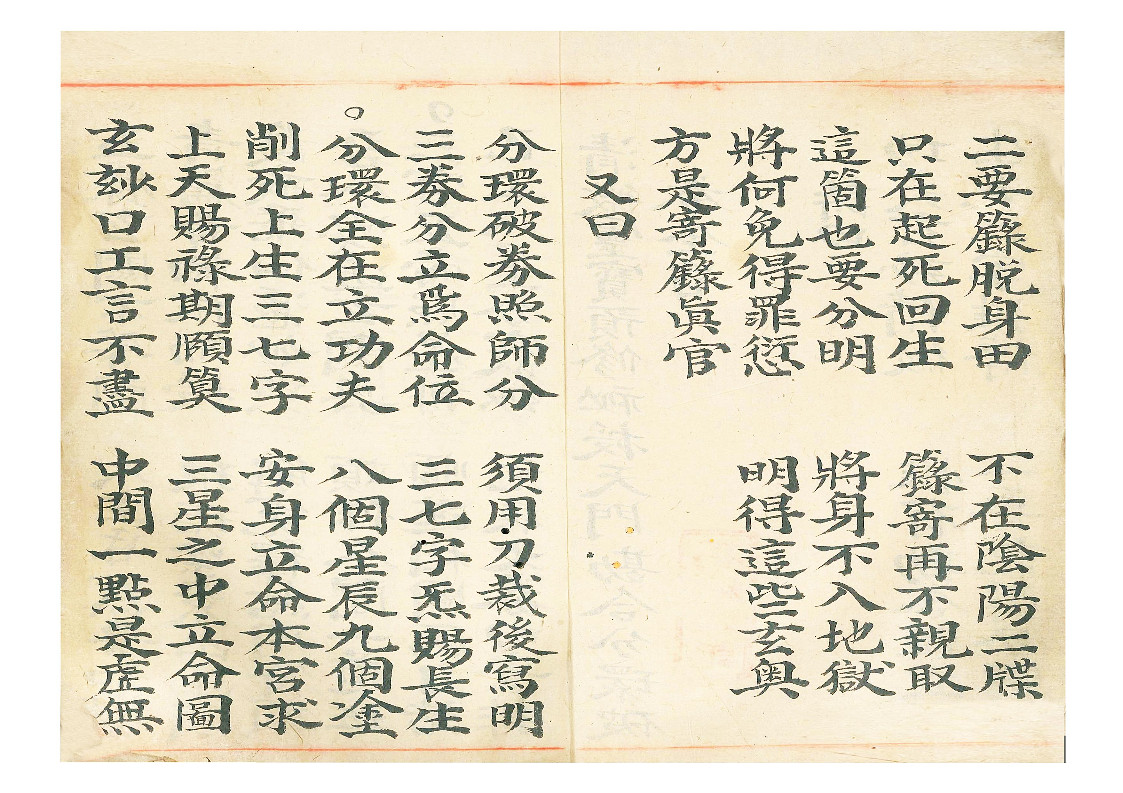 二要籙脱身田　不在陰陽二牒
只在起死回生　籙寄再不親取
這箇也要分明　將身不入地獄
將何免得罪愆　明得這些玄奥
方是寄籙眞官
又曰
分環破券照師分　須用刀裁後寫明
三券分立爲命位　三七字炁賜長生
○分環全在立功夫　八個星辰九個塗
削死上生三七字　安身立命本宮求
上天賜祿期頤筭　三星之中立命圖
玄玅口工言不盡　中間一點是虛無